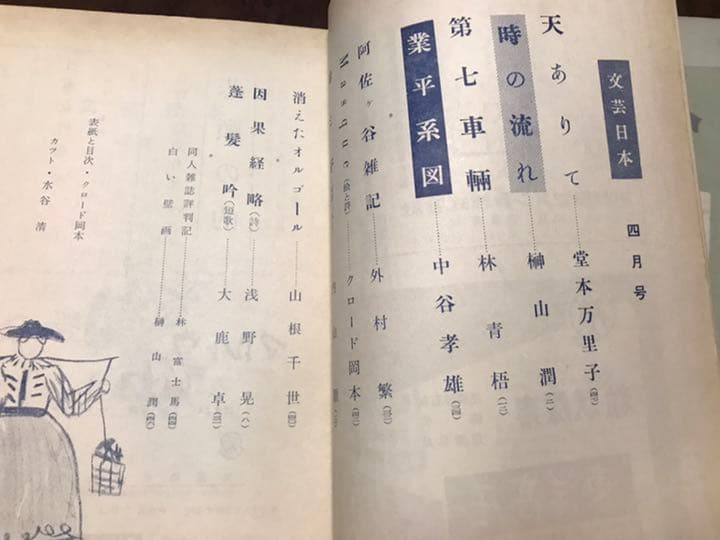 文芸日本
四月号
天ありて………堂本万里子
時の流れ………榊山潤(二)
第七車輛………林青梧(一三)
業平系図………中谷孝雄
阿佐ヶ谷雑記………外村繁
Masque(絵と詩)………クロード岡本
消えたオルゴール………山根千世
因果経略(詩)………浅野晃(八)
蓬髪吟(短歌)………大鹿卓
同人雑誌評判記………林富士馬
白い壁画………榊山潤
表紙と目次・クロード岡本
カット・水谷清